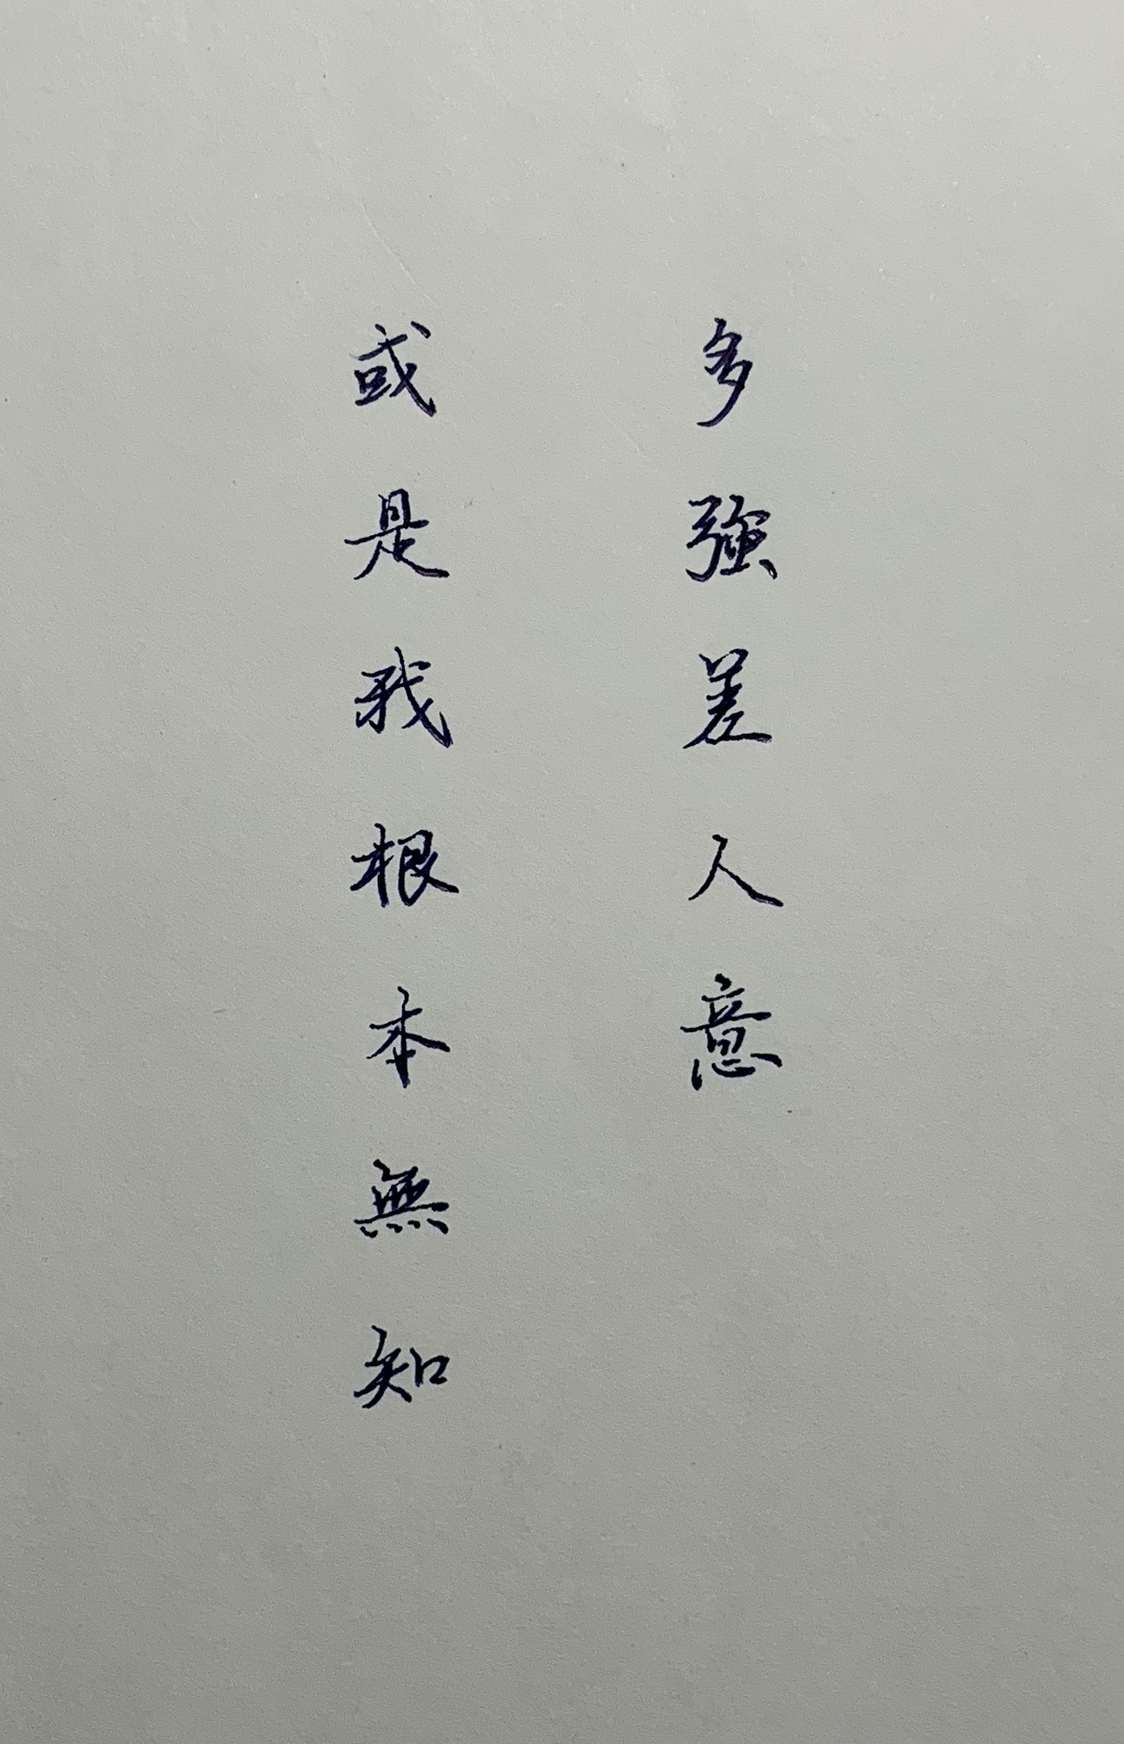 多強差人意
或是我根本無知